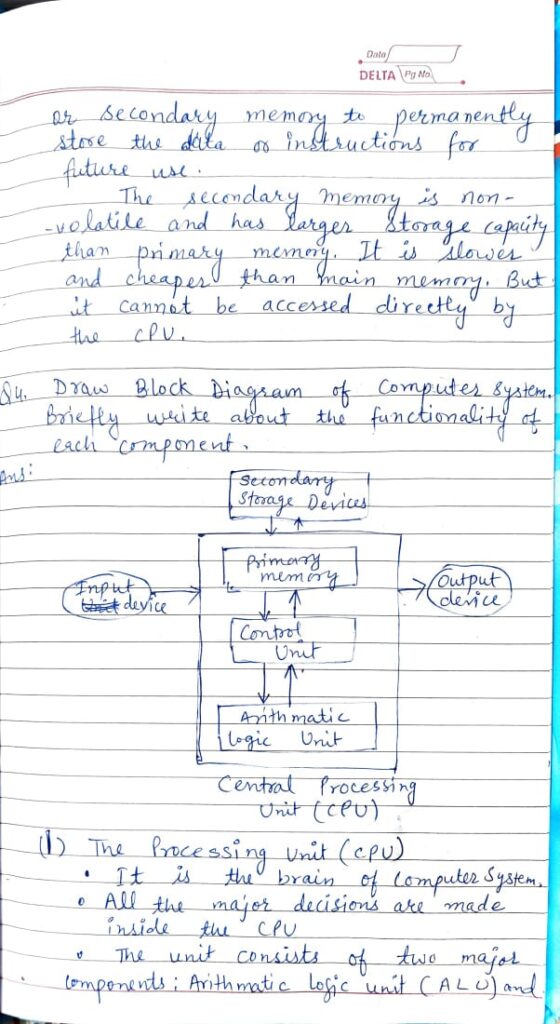 Date
DELTA Pg No.
or secondary memory to permanently
store the data or instructions for
future use.
The secondary memory is non-
-volatile and has larger storage capacity
than primary memory. It is slower
and cheaper than main memory. But
it cannot be accessed directly by
the CPU.
Q4. Draw Block Diagram of Computer System.
Briefly write about the functionality of
each component.
Ans:
Secondary
Storage Devices
Primary
memory
Input
Unit device
Output
device
Control
Unit
Arithmatic
Logic Unit
Central Processing
Unit (CPU)
(1) The Processing Unit (CPU)
• It is the brain of Computer System.
• All the major decisions are made
inside the CPU
• The unit consists of two major
components: Arithmatic logic unit (ALU) and